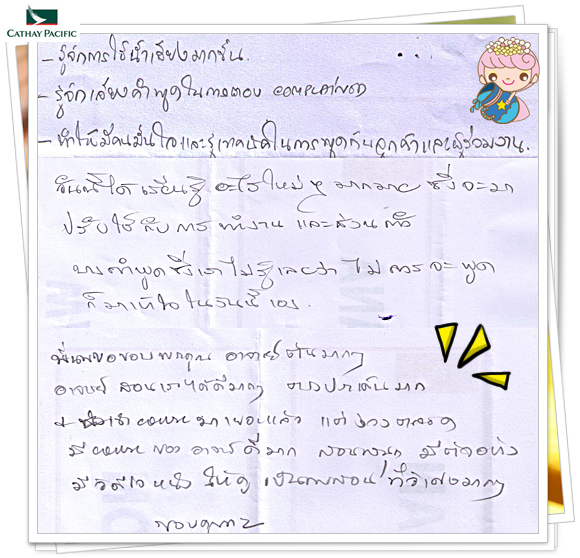 CATHAY PACIFIC
- รู้จักการใช้น้ำเสียงมากขึ้น.
- รู้จักเลี่ยงคำพูดในการตอบ complained
- ทำให้มีความมั่นใจและรู้เทคนิคในการพูดกับลูกค้าและผู้ร่วมงาน.
วันนี้ได้เรียนรู้ อะไรใหม่ๆ มากมาย ซึ่งจะมา
ปรับใช้กับการ ทำงาน และส่วนตัว
บางคำพูด ซึ่งเราไม่รู้เลยว่า ไม่ควรจะพูด
ก็มาเข้าใจในวันนี้เอง.
ขอขอบพระคุณ อาจารย์ มากๆ
อาจารย์ สอนเราได้ดีมากๆ ตรงประเด็นมาก
course มาเยอะแล้ว แต่
มี course ของ อาจารย์ ดีมาก สอนสนุก มีตัวอย่าง
มีวีดีโอ หนัง ให้ดู มากๆ
ขอบคุณค่ะ